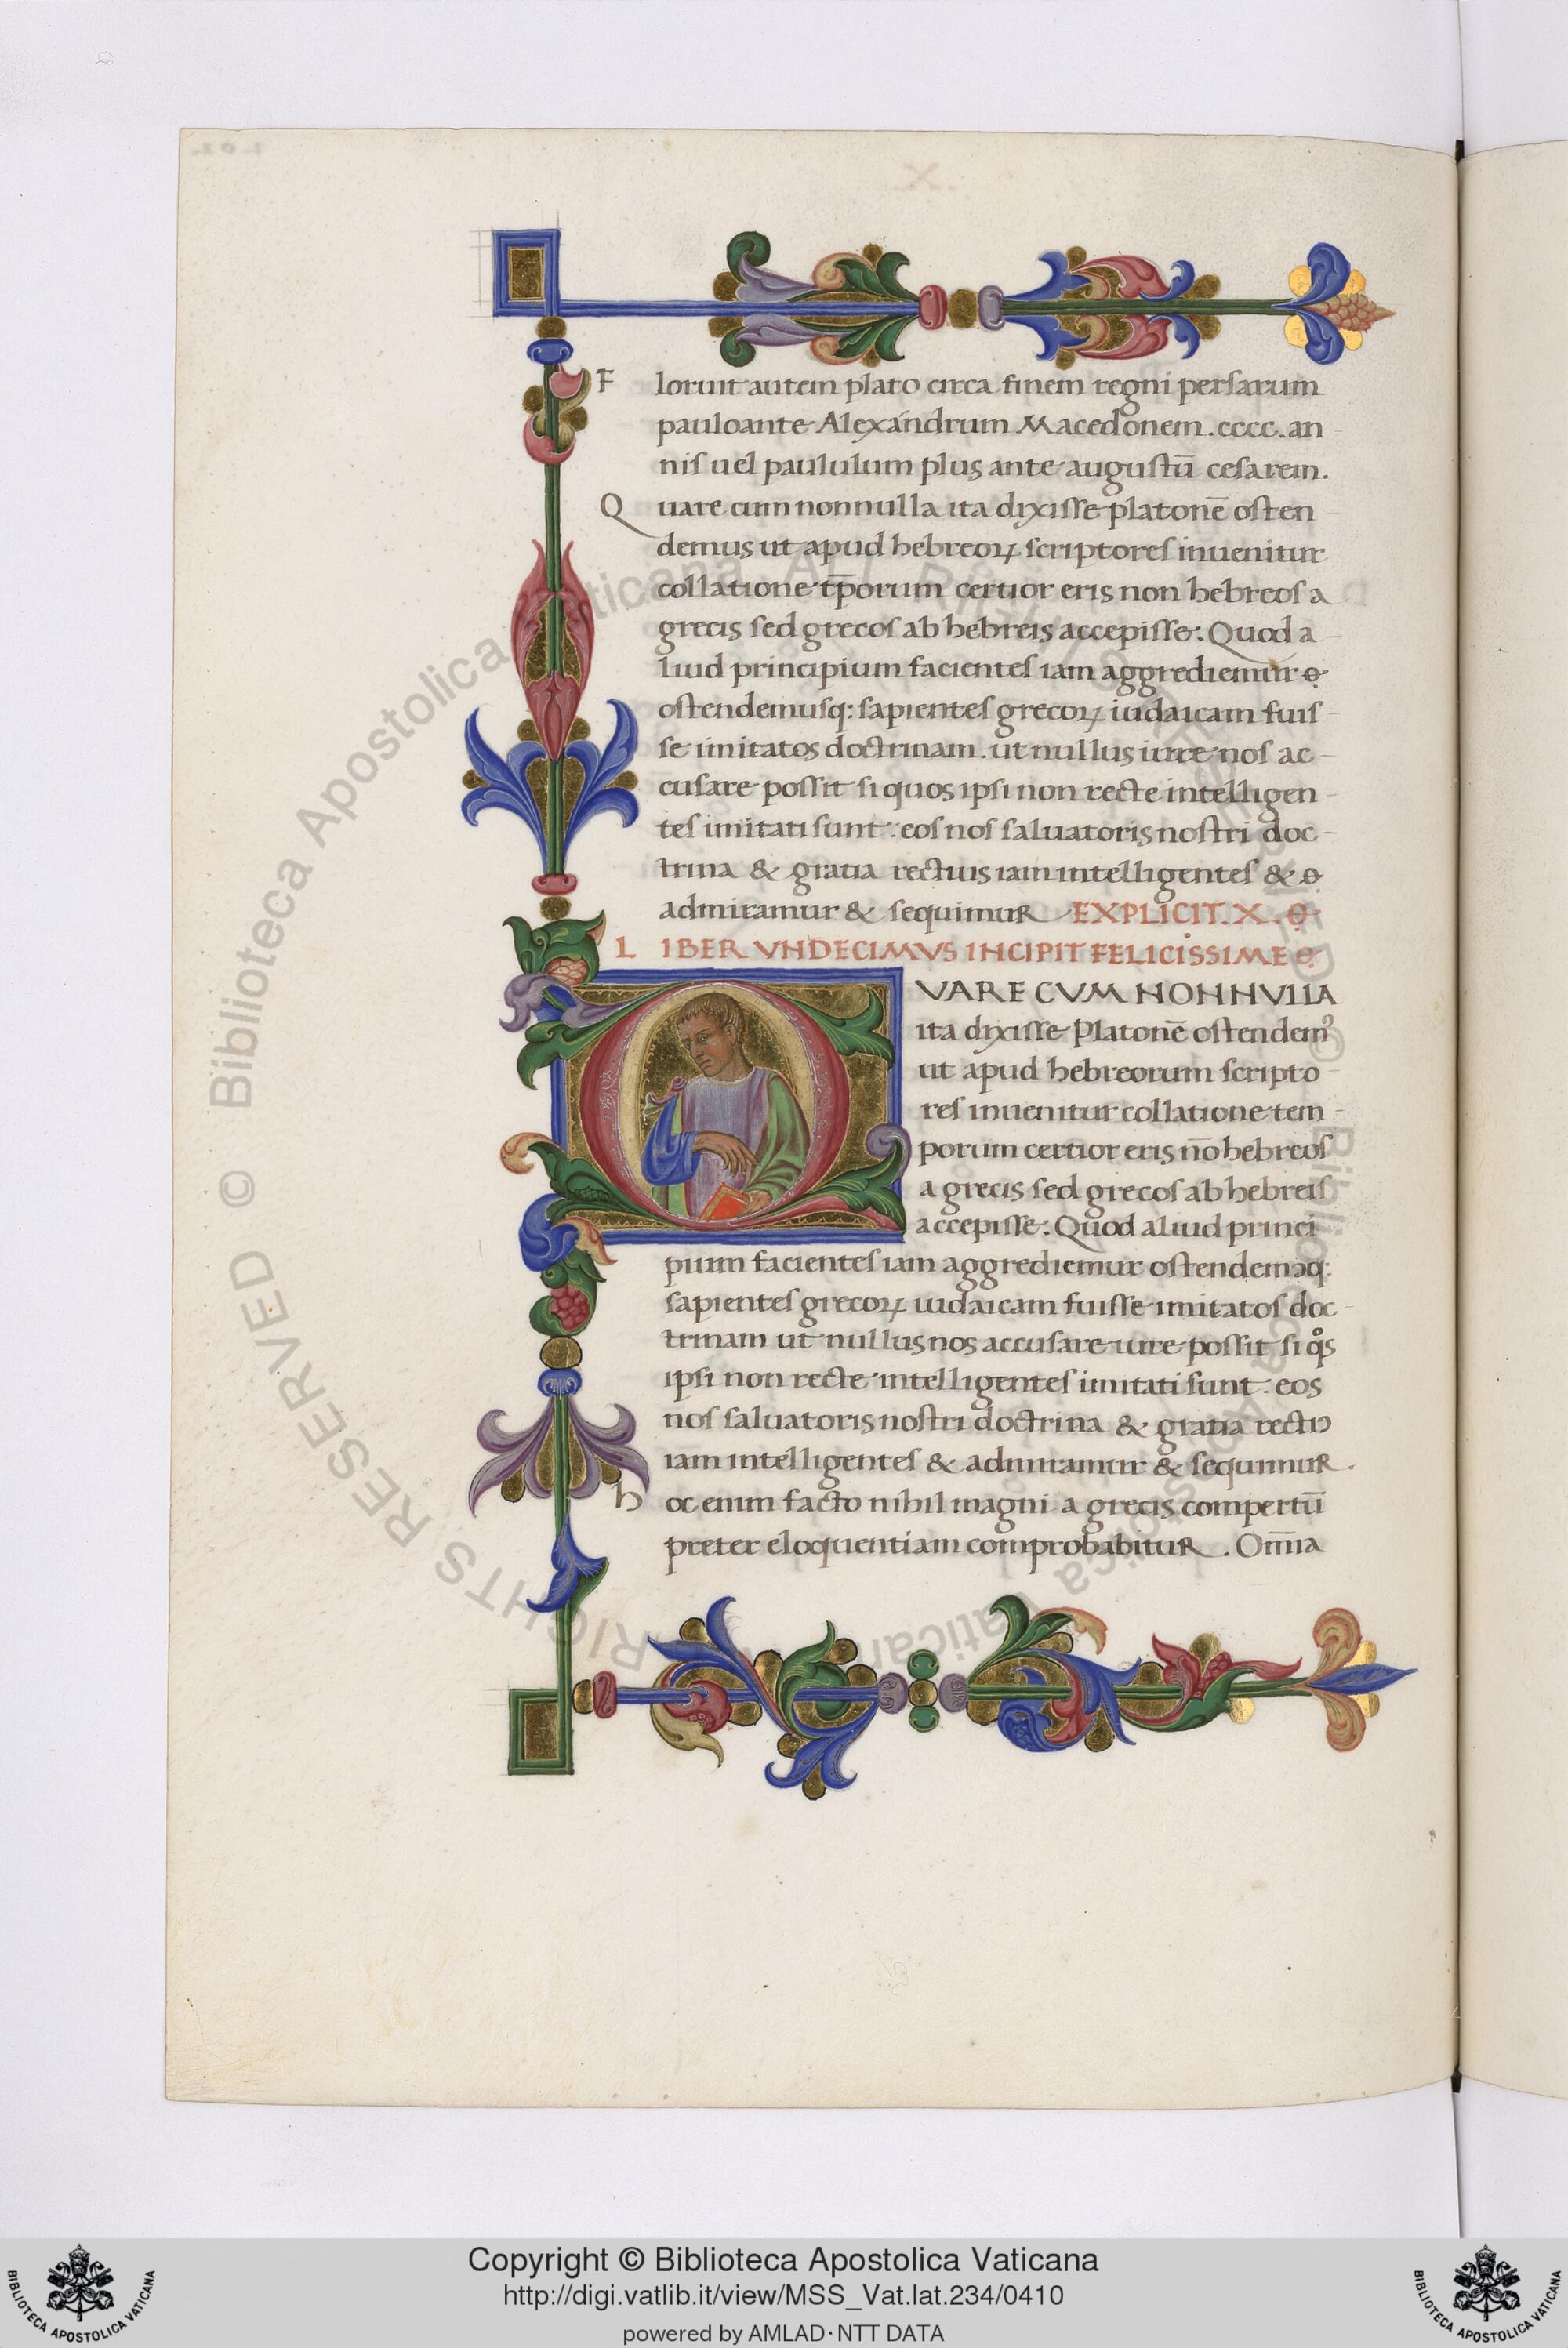 F loruit autem plato circa finem regni persarum
pauloante Alexándrum Macedonem.cccc.an
nis uel paululum plus ante augustū cesarem.
Quare cum nonnulla ita dixisse platonē osten
demus ut apud hebreoꝝ scriptores inuenitur
collatione tp̄orum certior eris non hebreos a
grecis sed grecos ab hebreis accepisse: Quod a
liud principium facientes iam aggrediemur
ostendemusq: sapientes grecoꝝ iudaicam fuis
se imitatos doctrinam. ut nullus iure nos ac
cusare possit si quos ipsi non recte intelligen
tes imitati sunt: eos nos saluatoris nostri doc
trina & gratia rectius iam intelligentes &
admiramur & sequimur EXPLICIT. X.
LIBER VNDECIMVS INCIPIT FELICISSIME
VARE CVM NONNVLLA
ita dixisse Platonē ostendemꝰ
ut apud hebreorum scripto
res inuenitur collatione tem
porum certior eris nō hebreos
a grecis sed grecos ab hebreis
accepisse: Quod aliud princi
pium facientes iam aggrediemur ostendemꝰq:
sapientes grecoꝝ iudaicam fuisse imitatos doc
trinam ut nullus nos accusare iure possit si qͦs
ipsi non recte intelligentes imitati sunt: eos
nos saluatoris nostri doctrina & gratia rectiꝰ
iam intelligentes & admiramur & sequimur.
hoc enim facto nihil magni a grecis compertū
preter eloquentiam comprobabitur. Om̄ia
© Biblioteca Apostolica Vaticana ALL RIGHTS RESERVED
© Biblioteca Apostolica Vaticana ALL RIGHTS RESERVED
Copyright © Biblioteca Apostolica Vaticana
http://digi.vatlib.it/view/MSS_Vat.lat.234/0410
powered by AMLAD·NTT DATA
BIBLIOTECA APOSTOLICA VATICANA
BIBLIOTECA APOSTOLICA VATICANA